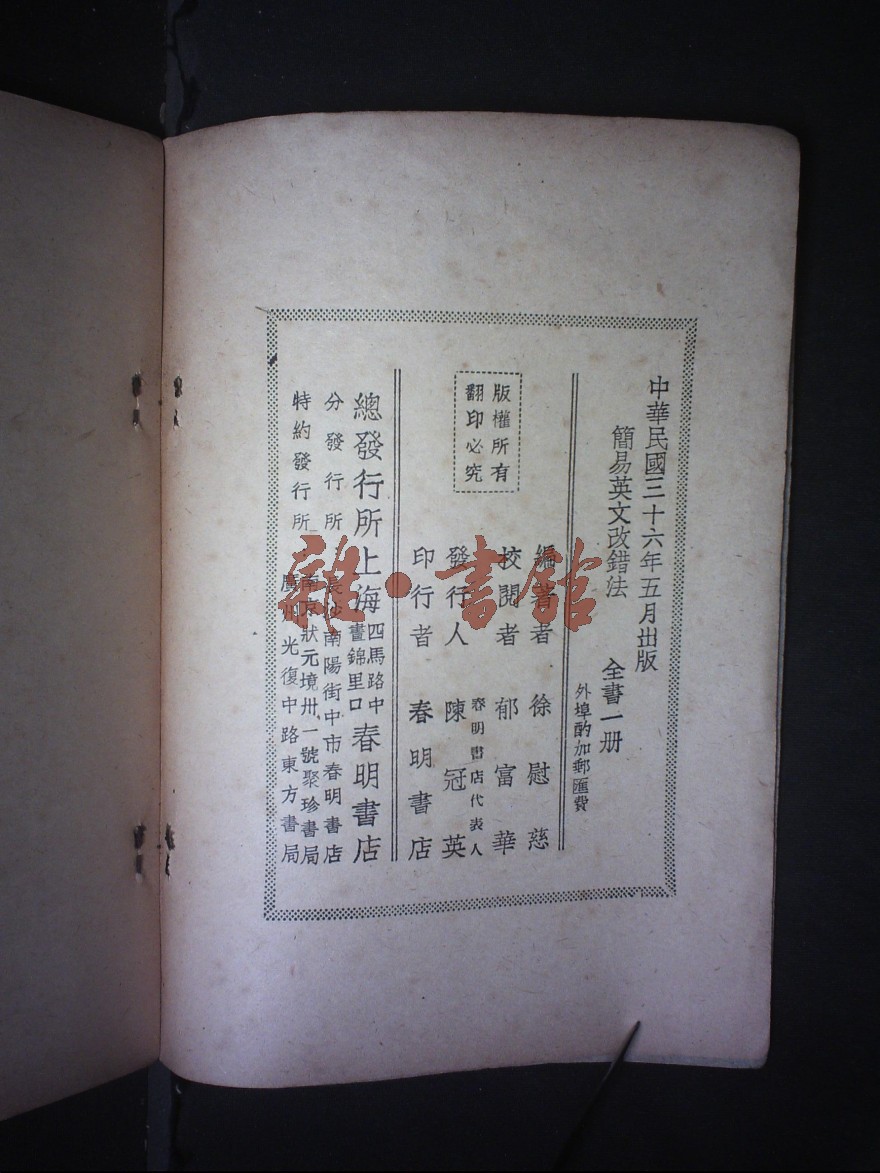 中華民國三十六年五月出版
簡易英文改錯法
全書一册
外埠酌加郵匯費
版權所有
翻印必究
編著者 徐慰慈
校閱者 郁富華
春明書店代表人
發行人 陳冠英
印行者 春明書店
總發行所 上海 四馬路中
畫錦里口 春明書店
分發行所 長沙南陽街中市春明書店
特約發行所 南京狀元境卅一號聚珍書局
廣州光復中路東方書局
雜·書館